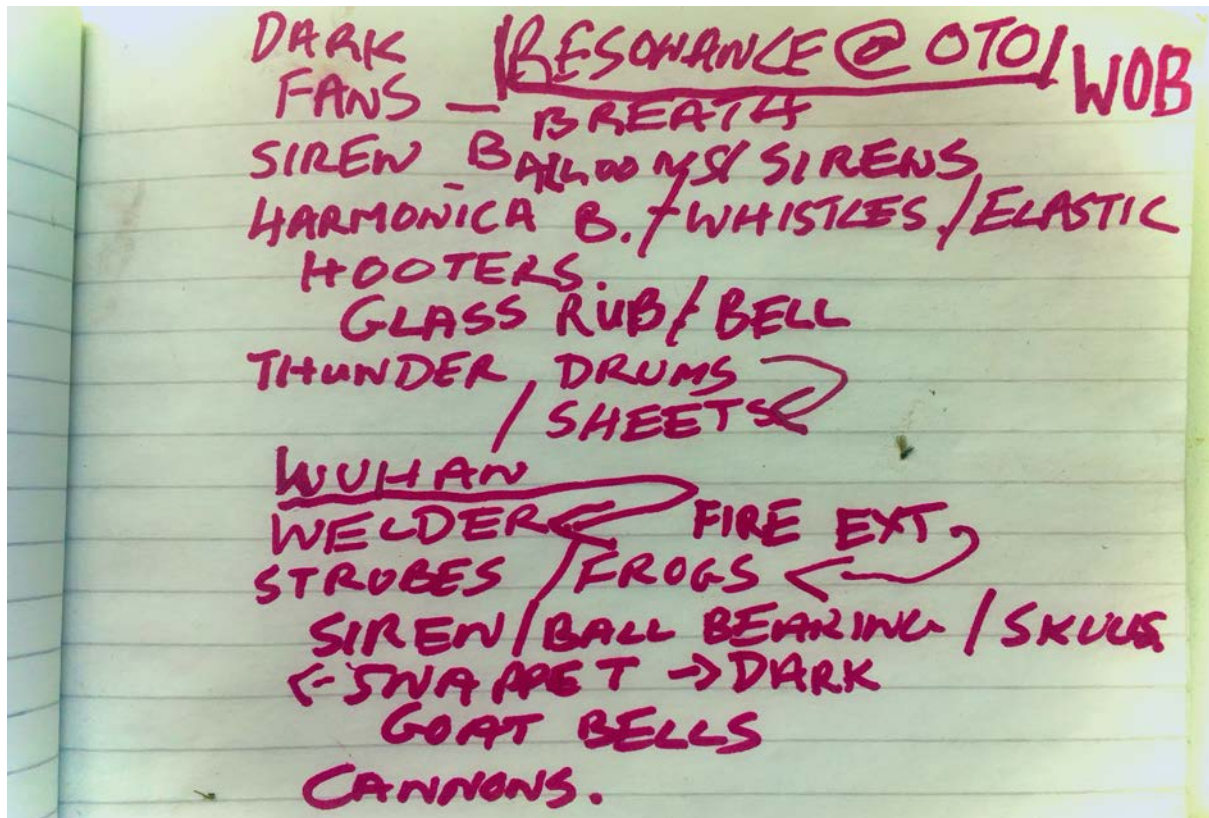 DARK |RESONANCE @ OTO| WOB
FANS – BREATH
SIREN – BALLOONS/ SIRENS
HARMONICA B. / WHISTLES. / ELASTIC
HOOTERS.
GLASS RUB / BELL
THUNDER, DRUMS
/ SHEETS
WUHAN
WELDER FIRE EXT
STROBES / FROGS
SIREN / BALL BEARING / SKULLS
<- SNAPPET -> DARK
GOAT BELLS
CANNONS.